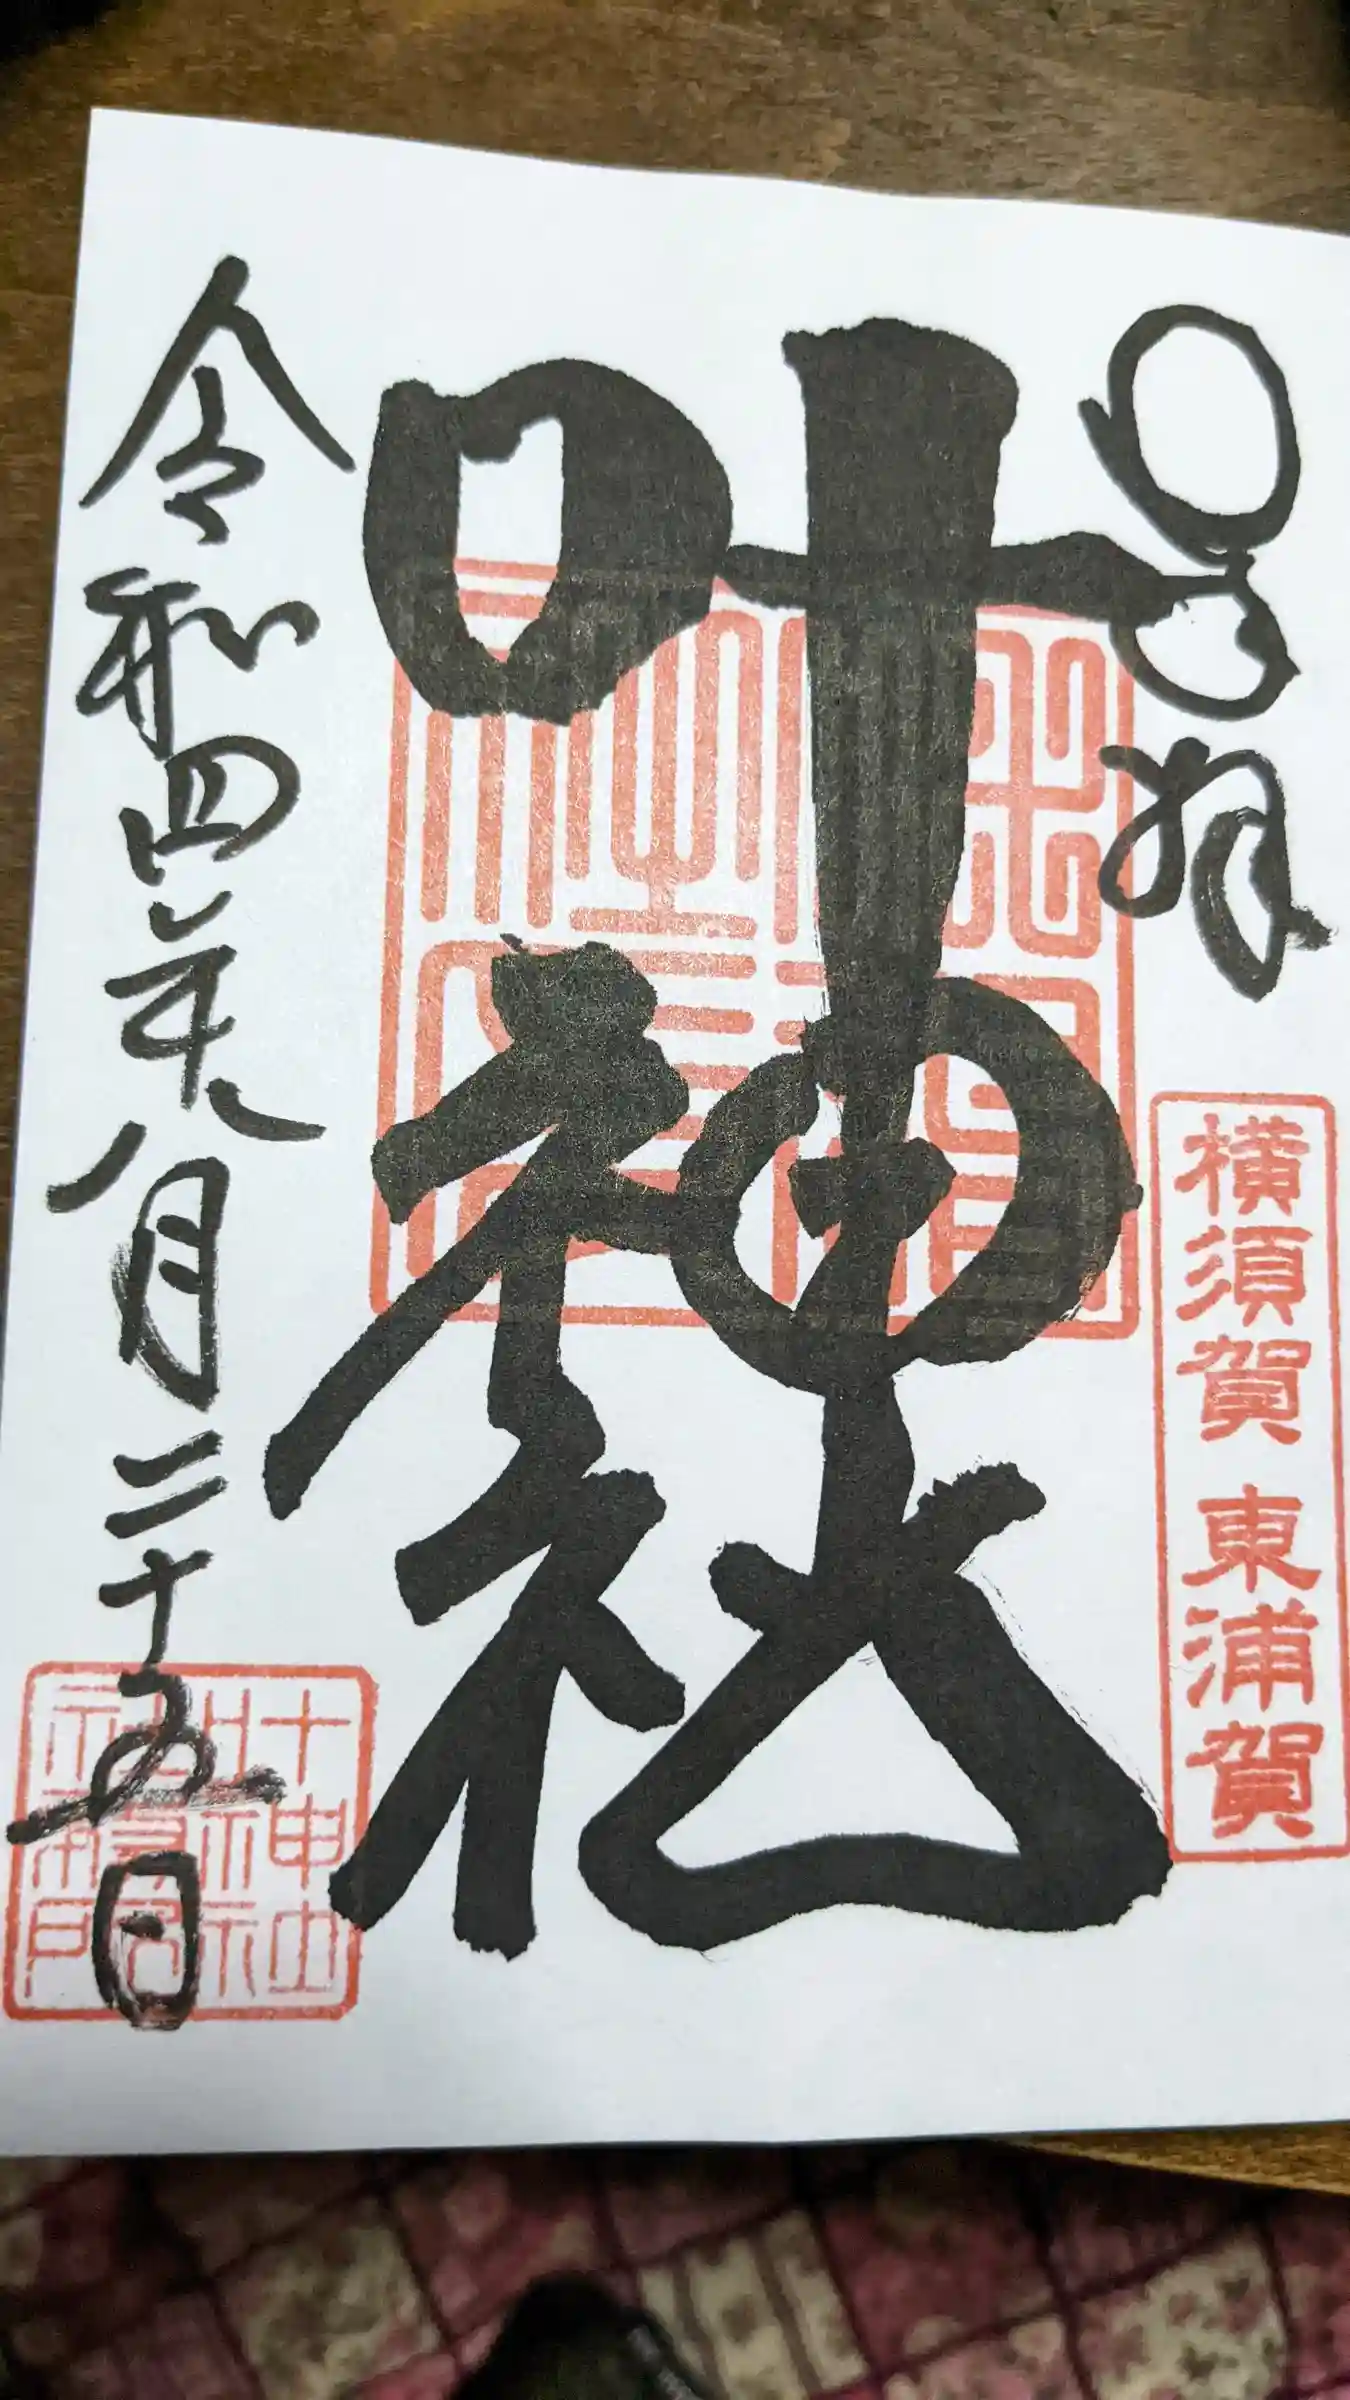 奉拝
横須賀 東浦賀
叶神社
令和四年八月二十五日